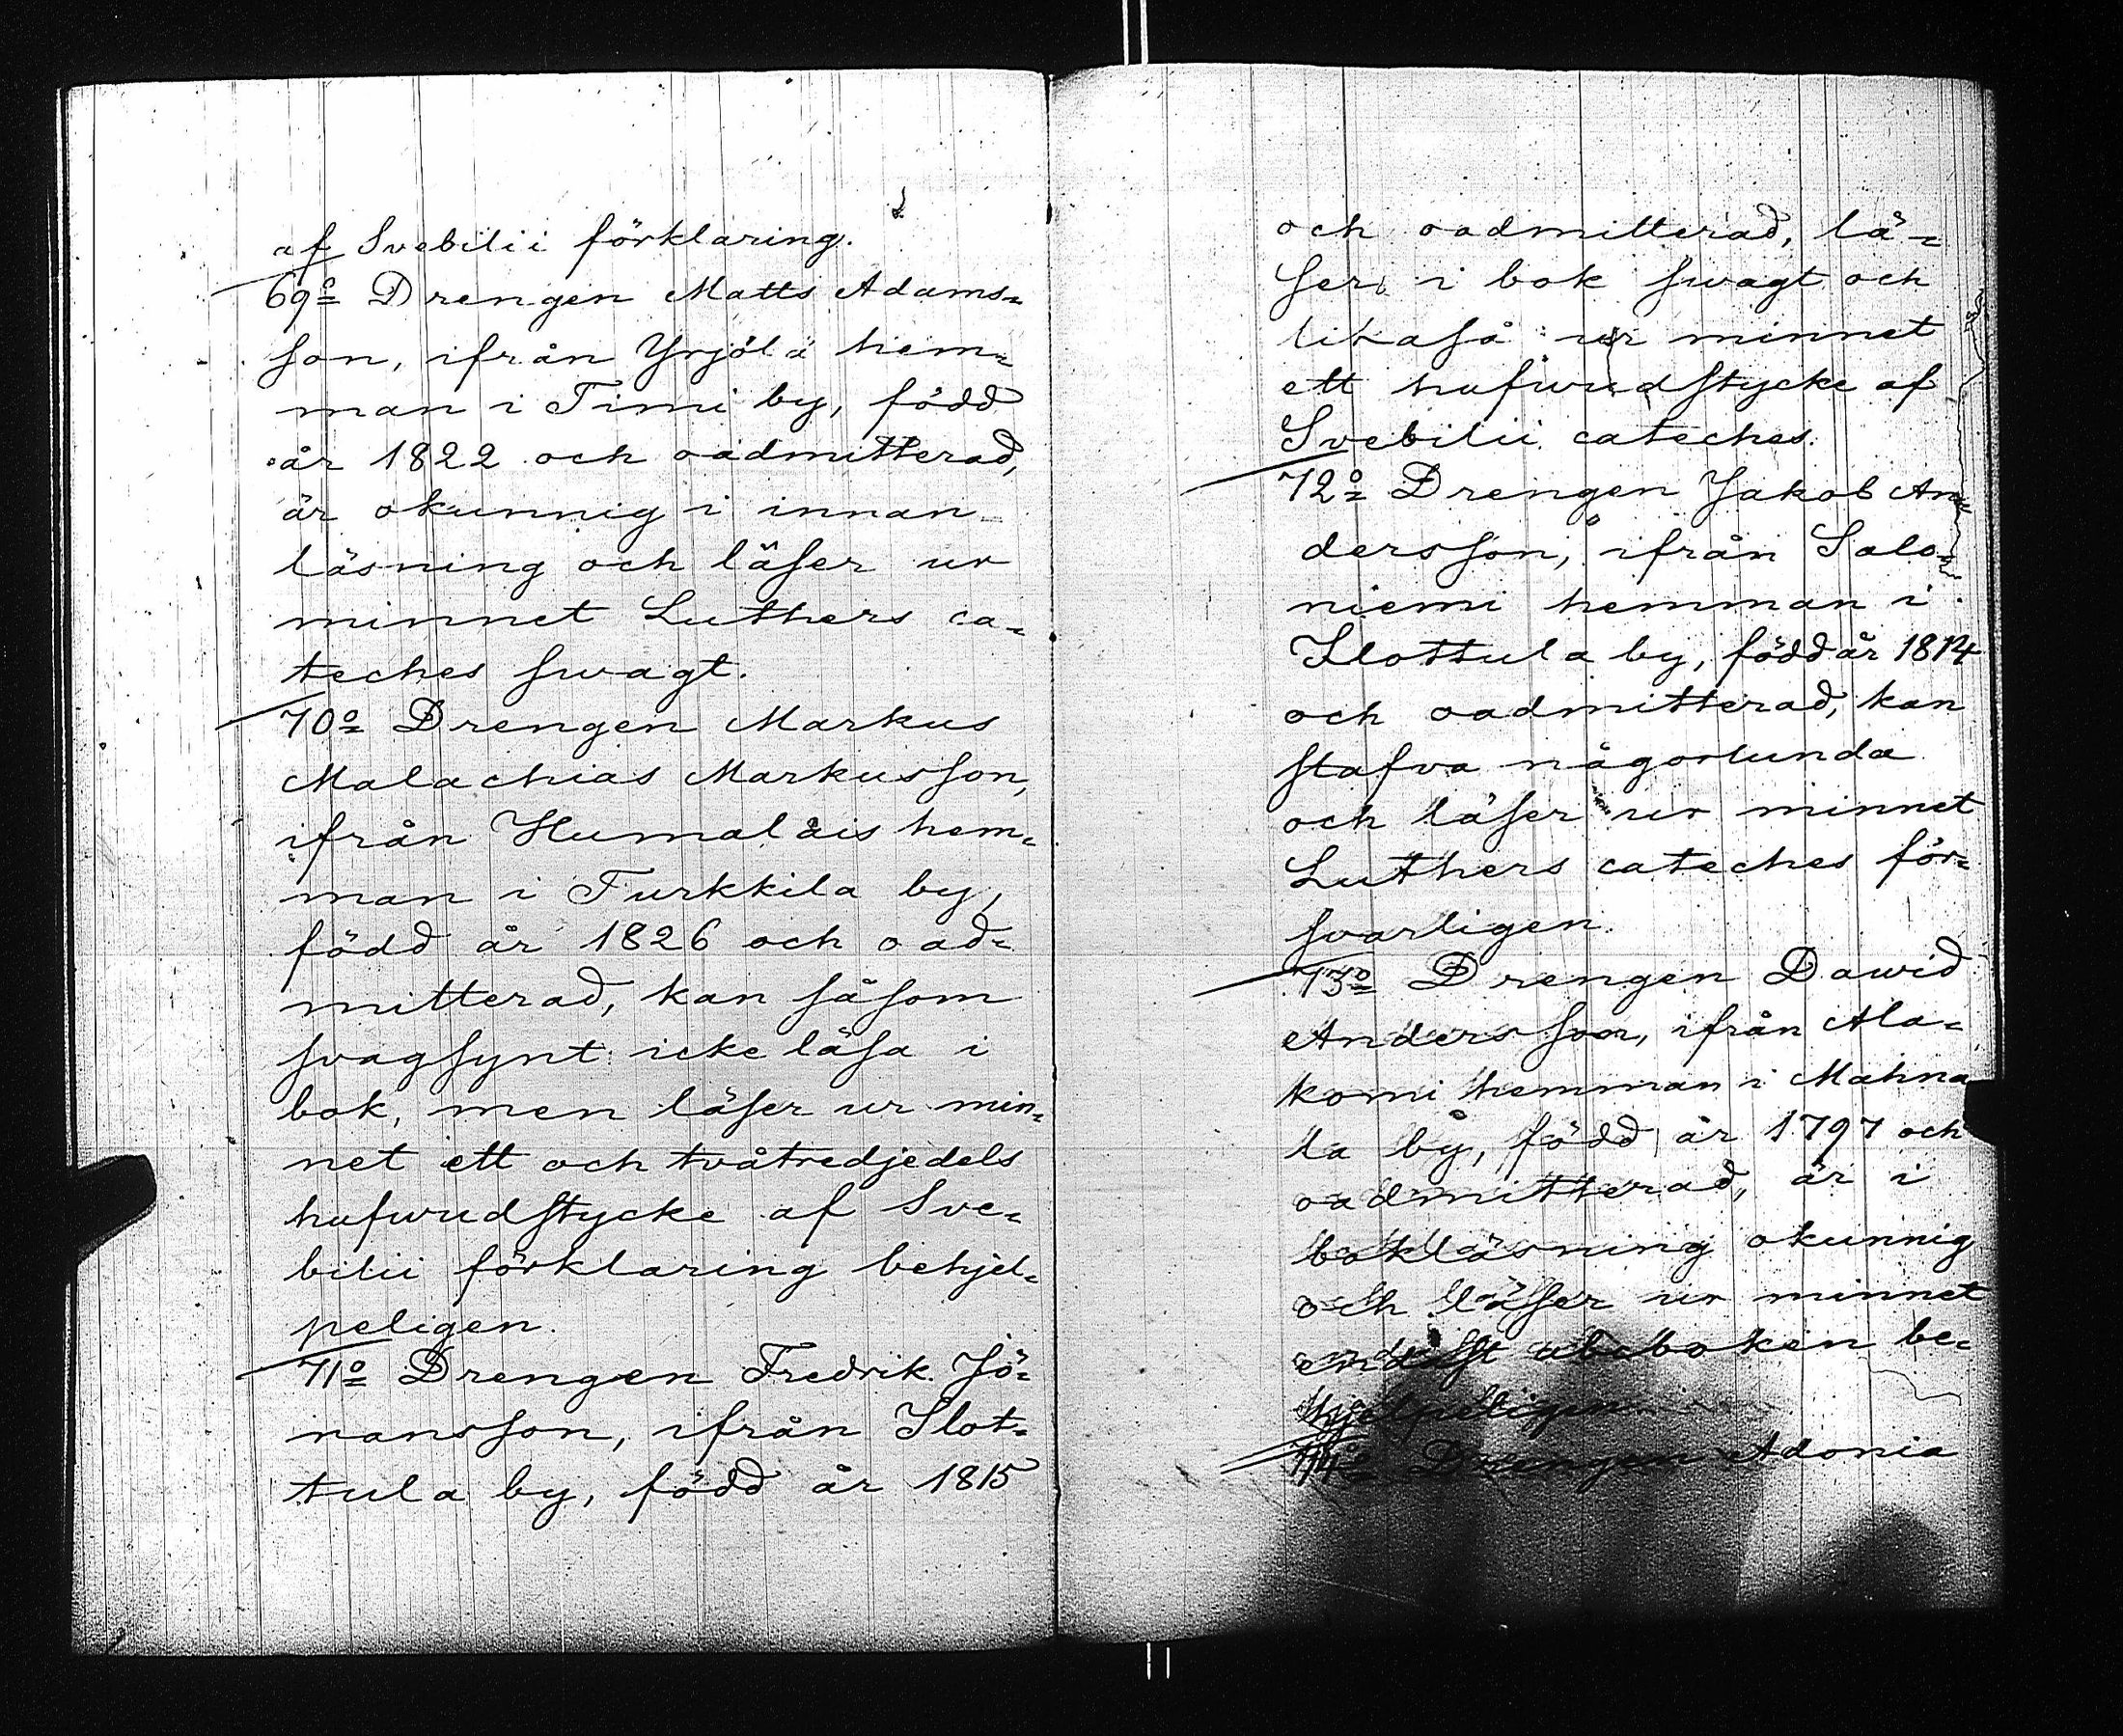 af Svebilii förklaring.
69o= Drengen Matts Adams=
son, ifrån Yrjölä hem=
man i Timi by, född
år 1822 och oadmitterad,
är okunnig i innan
läsning och läser ur
minnet Luthers ca=
teches swagt.
70o= Drengen Markus
Malachias Markusson,
ifrån Humalåis hem=
man i Turkkila by,
född år 1826 och oad=
mitterad, kan såsom
svagsynt icke läsa i
bok, men läser ur min=
net ett och tvåtredjedels
hufwudstycke af Sve=
bilii förklaring behjel=
peligen.
71o= Drengen Fredrik Jö=
ransson, ifrån Slot=
tula by, född år 1815
och oadmitterad, lä=
ser i bok swagt och
likaså ur minnet
ett hufwudstycke af
Svebilii cateches.
72o= Drengen Jakob An=
dersson, ifrån Salo=
niemi hemman i
Slottula by, född år 1814
och oadmitterad, kan
stafva någorlunda
och läser ur minnet
Luthers cateches för=
svarligen.
73o= Drengen Dawid
Andersson, ifrån Ala=
komi hemman i Mahna
la by, född år 1797 och
oadmitterad, är i
bokläsning okunnig
och läser ur minnet
endast abcboken be=
hjelpeligen
74o= Drengen Adonia